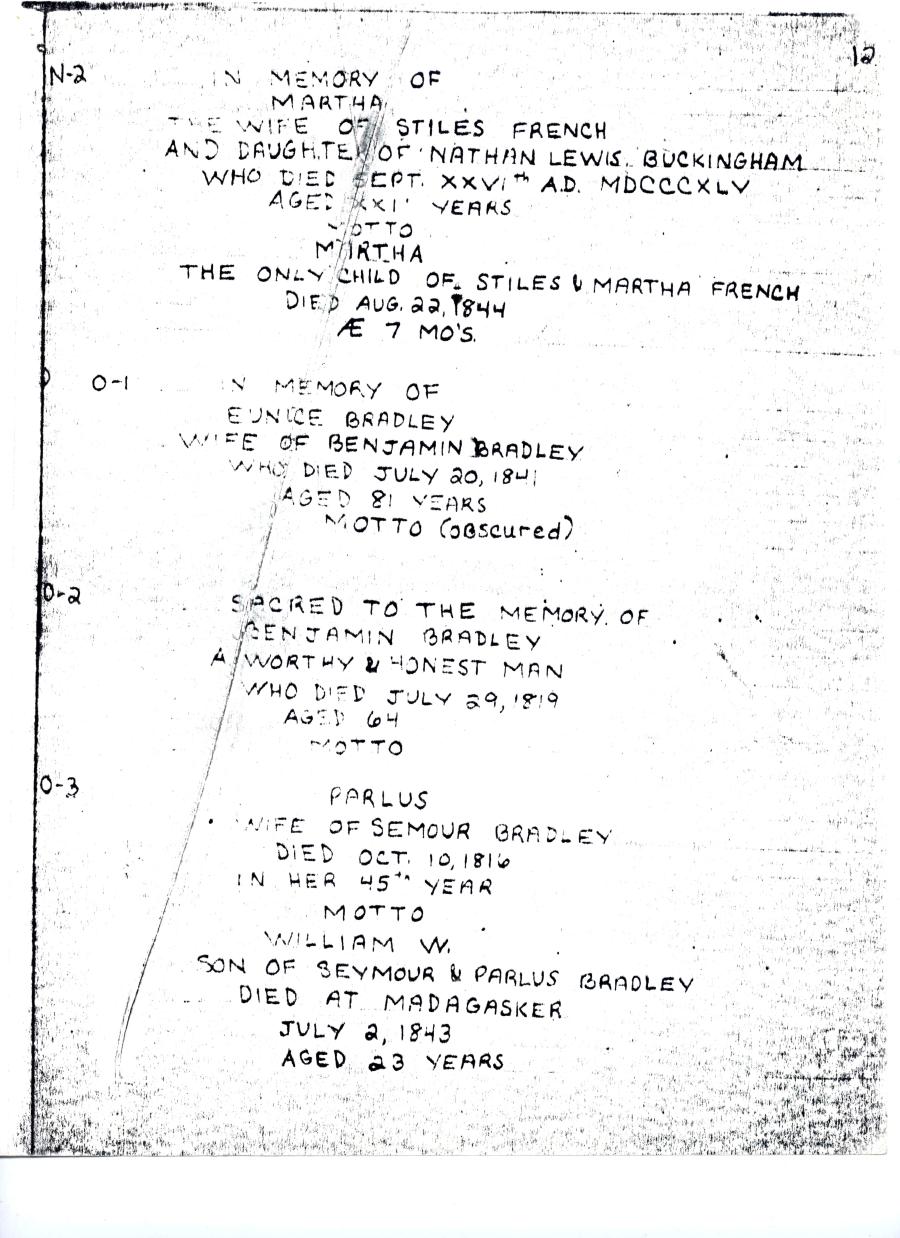 12
N-2
IN MEMORY OF
MARTHA
THE WIFE OF STILES FRENCH
AND DAUGHTER OF NATHAN LEWIS BUCKINGHAM
WHO DIED SEPT. XXVIth A.D. MDCCCXLV
AGED XXI YEARS
MOTTO
MARTHA
THE ONLY CHILD OF STILES & MARTHA FRENCH
DIED AUG. 22, 1844
Æ 7 MO'S.
O-1
IN MEMORY OF
EUNICE BRADLEY
WIFE OF BENJAMIN BRADLEY
WHO DIED JULY 20, 1841
AGED 81 YEARS
MOTTO (OBSCURED)
O-2
SACRED TO THE MEMORY OF
BENJAMIN BRADLEY
A WORTHY & HONEST MAN
WHO DIED JULY 29, 1819
AGED 64
MOTTO
O-3
PARLUS
WIFE OF SEMOUR BRADLEY
DIED OCT. 10, 1816
IN HER 45th YEAR
MOTTO
WILLIAM W.
SON OF SEYMOUR & PARLUS BRADLEY
DIED AT MADAGASKER
JULY 2, 1843
AGED 23 YEARS